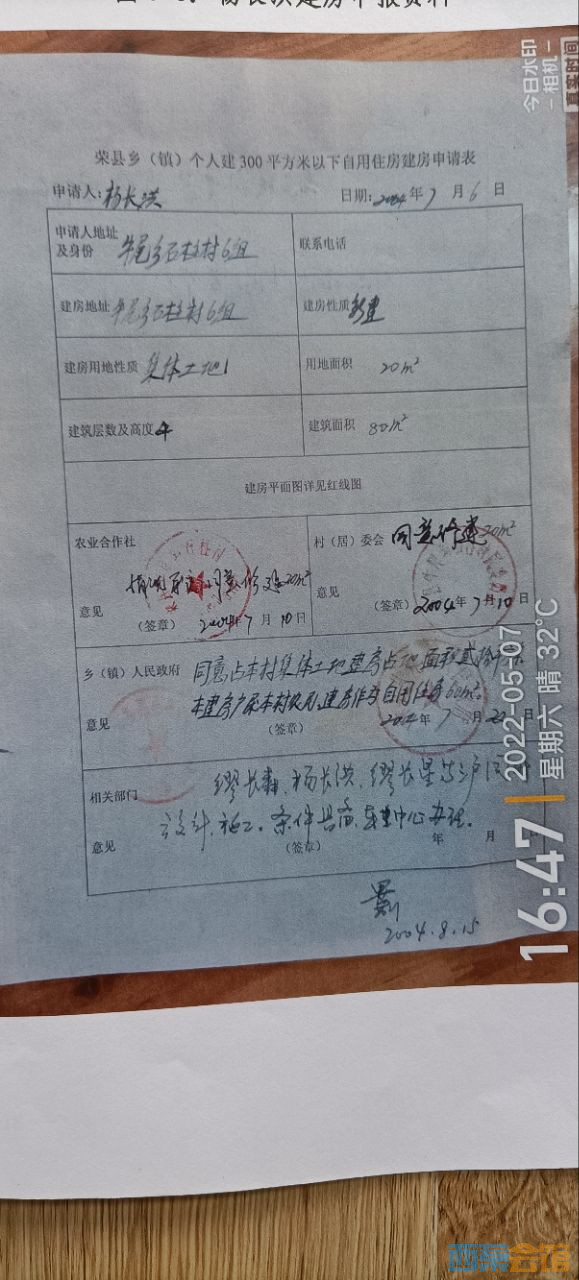 杨长洪建房申报资料
荣县乡（镇）个人建300平方米以下自用住房建房申请表
申请人:杨长洪 日期:2004年7月6日
申请人地址及身份 牛尾乡石柱村6组 联系电话
建房地址 牛尾乡石柱村6组 建房性质 新建
建房用地性质 集体土地 用地面积 20m²
建筑层数及高度 4 建筑面积 80m²
建房平面图详见红线图
农业合作社 村（居）委会 同意修建20m²
同意修建20m²
意见 意见
（签章） 2004年7月10日 （签章） 2004年7月10日
乡（镇）人民政府 同意占本村集体土地建房占地面积贰拾
本建房户系本村农民,建房作为自用住房60m²。
意见 （签章） 2004年7月22日
相关部门 缪长森、杨长洪、缪长星等三户
设计、施工。条件具备,中心办理。
意见 （签章） 年 月
2004.8.15
今日水印
-相机-
真实时间
16:47
2022-05-07
星期六 晴 32°C
西部会馆